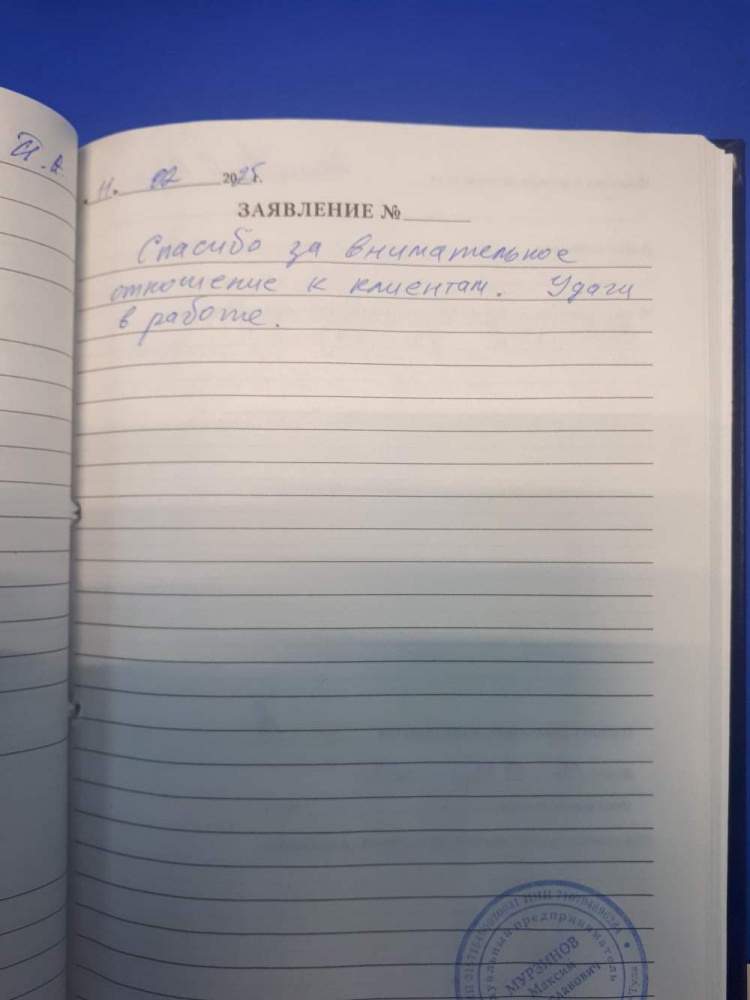 11. 02 2025 г.
ЗАЯВЛЕНИЕ №
Спасибо за внимательное
отношение к клиентам. Удачи
в работе.
предприниматель
МУРЗИНОВ
Максим